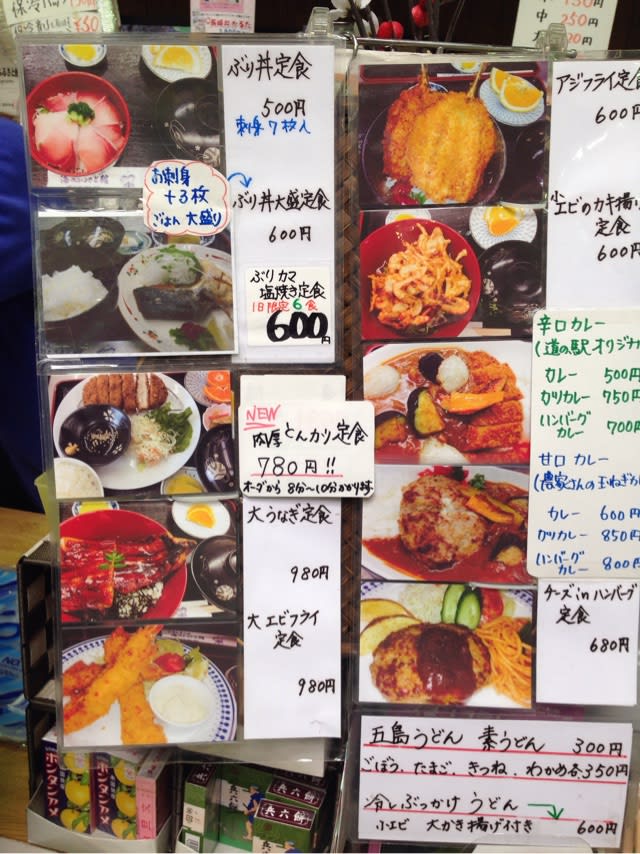 保冷
¥50
中 250円
小 200円
ぶり丼定食
500円
刺身7枚入
お刺身
+3枚
ごはん大盛り
ぶり丼大盛定食
600円
ぶりカマ
塩焼き定食
1日限定6食
600円
NEW
肉厚とんカツ定食
780円!!
オーダから8分~10分かかります
大うなぎ定食
980円
大エビフライ
定食
980円
アジフライ定食
600円
小エビのカキ揚げ
定食
600円
辛口カレー
(道の駅オリジナ
カレー 500円
カツカレー 750円
ハンバーグ
カレー 700円
甘口カレー
(農家さんの玉ねぎカ
カレー 600円
カツカレー 850円
ハンバーグ
カレー 800円
チーズinハンバーグ
定食
680円
五島うどん 素うどん 300円
ごぼう、たまご、きつね、わかめ各350円
冷しぶっかけうどん
小エビ 大かき揚げ付き 600円
ボンタンアメ
ボンタンアメ
兵六餅
兵六餅